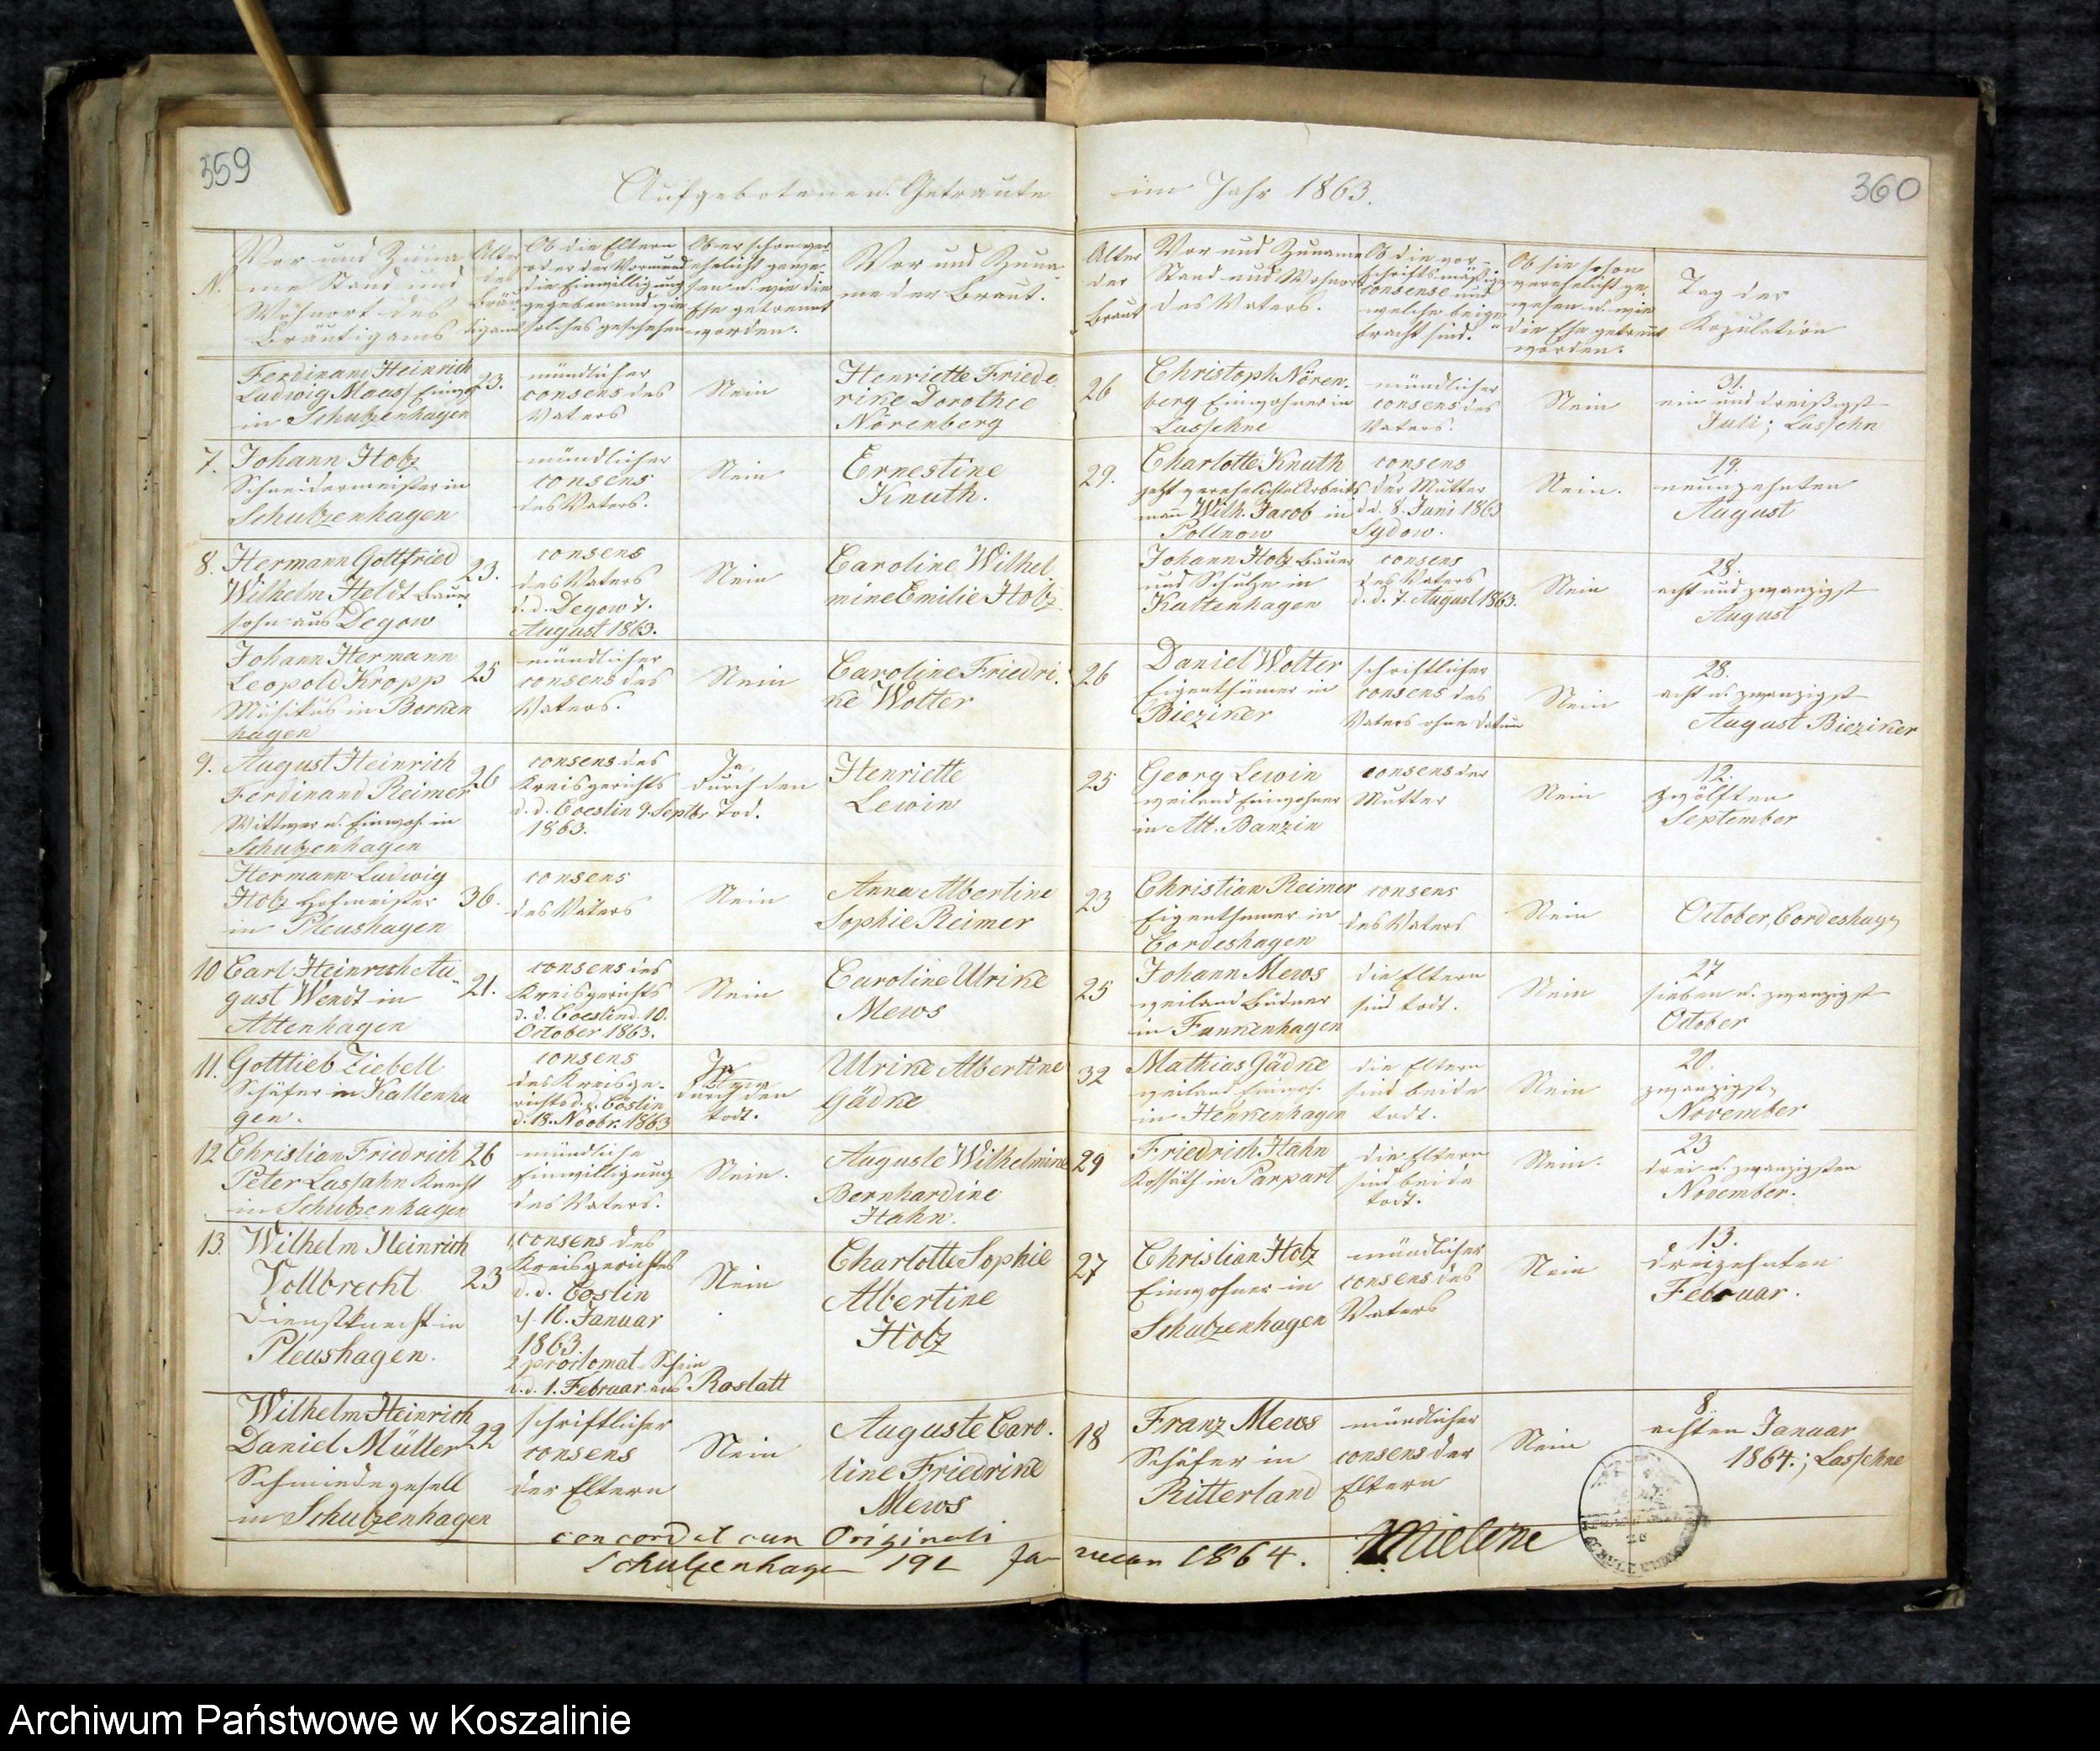 359
Aufgebotene u. Getraute
im Jahr 1863.
360
N.
Vor und Zuna-
me Stand und
Wohnort des
Bräutigams
Alter
des
Bräu-
tigams
Ob die Eltern
oder der Vormund
die Einwilligung
gegeben und wie
solches geschehen
Ob er schon ver
ehelicht gewe-
sen u. wie die
Ehe getrennt
worden.
Vor und Zuna
me der Braut.
Alter
der
Braut
Vor und Zuname
Stand und Wohnort
des Vaters.
Ob die vor-
schriftsmäßige
consense und
welche beige
bracht sind.
Ob sie schon
verehelicht ge-
wesen u. wie
die Ehe getrennt
worden.
Tag der
Kopulation
Ferdinand Heinrich
Ludwig Maass Einw.
in Schulzenhagen
23.
mündlicher
consens des
Vaters
Nein
Henriette Friede
rike Dorothee
Nörenberg
26
Christoph Nören-
berg Einwohner in
Lassehne
mündlicher
consens des
Vaters.
Nein
31.
ein und dreißigst
Juli; Lassehn
7.
Johann Holz
Schneidermeister in
Schulzenhagen
mündlicher
consens
des Vaters.
Nein
Ernestine
Knuth.
29.
Charlotte Knuth
jetzt verehelichte Arbeits
mann Wilh. Jacob in
Pollnow
consens
der Mutter
d. d. 8. Juni 1863
Sydow.
Nein.
19.
neunzehnten
August
8.
Hermann Gottfried
Wilhelm Heldt Bauer
sohn aus Degow
23.
consens
des Vaters
d. d. Degow 7.
August 1863.
Nein
Caroline Wilhel
mine Emilie Holz
Johann Holz Bauer
und Schulze in
Kaltenhagen
consens
des Vaters
d. d. 7. August 1863.
Nein
28.
acht und zwanzigst
August
Johann Hermann
Leopold Kropp
Musikus in Borken
hagen
25
mündlicher
consens des
Vaters.
Nein
Caroline Friedri-
ke Wolter
26
Daniel Wolter
Eigenthümer in
Bieziker
schriftlicher
consens des
Vaters ohne Datum
Nein
28.
acht u. zwanzigst
August Bieziker
9.
August Heinrich
Ferdinand Reimer
Wittwer u. Einwoh. in
Schulzenhagen
26
consens des
Kreisgerichts
d. d. Coeslin 9. Septbr
1863.
Ja,
durch den
Tod.
Henriette
Lewin
25
Georg Lewin
weiland Einwohner
in Alt. Banzin
consens der
Mutter
Nein
12.
zwölften
September
Hermann Ludwig
Holz Hofmeister
in Pleushagen
36.
consens
des Vaters
Nein
Anna Albertine
Sophie Reimer
23
Christian Reimer
Eigenthümer in
Cordeshagen
consens
des Vaters
Nein
October, Cordeshagen
10
Carl Heinrich Au
gust Wendt in
Altenhagen
21.
consens des
Kreisgerichts
d. d. Coeslin d. 10.
October 1863.
Nein
Caroline Ulrike
Mews
25
Johann Mews
weiland Büdner
in Funkenhagen
die Eltern
sind todt.
Nein
27
sieben u. zwanzigst
October
11.
Gottlieb Ziebell
Schäfer in Kaltenha
gen.
consens
des Kreisge-
richts d. d. Cöslin
d. 18. Novbr. 1863
Ja
durch den
todt.
Ulrike Albertine
Gädke
32
Mathias Gädke
weiland Einwoh.
in Henkenhagen
die Eltern
sind beide
todt.
Nein
20.
zwanzigst
November
12
Christian Friedrich
Peter Lassahn Knecht
in Schulzenhagen
26
mündliche
Einwilligung
des Vaters.
Nein.
Auguste Wilhelmine
Bernhardine
Hahn.
29
Friedrich Hahn
Kossäth in Parpart
die Eltern
sind beide
todt.
Nein.
23
drei u. zwanzigsten
November.
13.
Wilhelm Heinrich
Vollbrecht
Dienstknecht in
Pleushagen.
23
consens des
Kreisgerichtes
d. d. Coslin
16. Januar
1863.
Schein
d. d. 1. Februar aus Rastatt
Nein
Charlotte Sophie
Albertine
Holz
27
Christian Holz
Einwohner in
Schulzenhagen
mündlicher
consens des
Vaters
Nein
13.
dreizehnten
Februar.
Wilhelm Heinrich
Daniel Müller
Schmiedegesell
in Schulzenhagen
22
schriftlicher
consens
der Eltern
Nein
Auguste Caro-
line Friedrike
Mews
18
Franz Mews
Schäfer in
Ritterland
mündlicher
consens der
Eltern
Nein
8.
achten Januar
1864.; Lassehne
concordat cum Originali
Schulzenhagen 19t Ja-
nuar 1864.
Archiwum Państwowe w Koszalinie